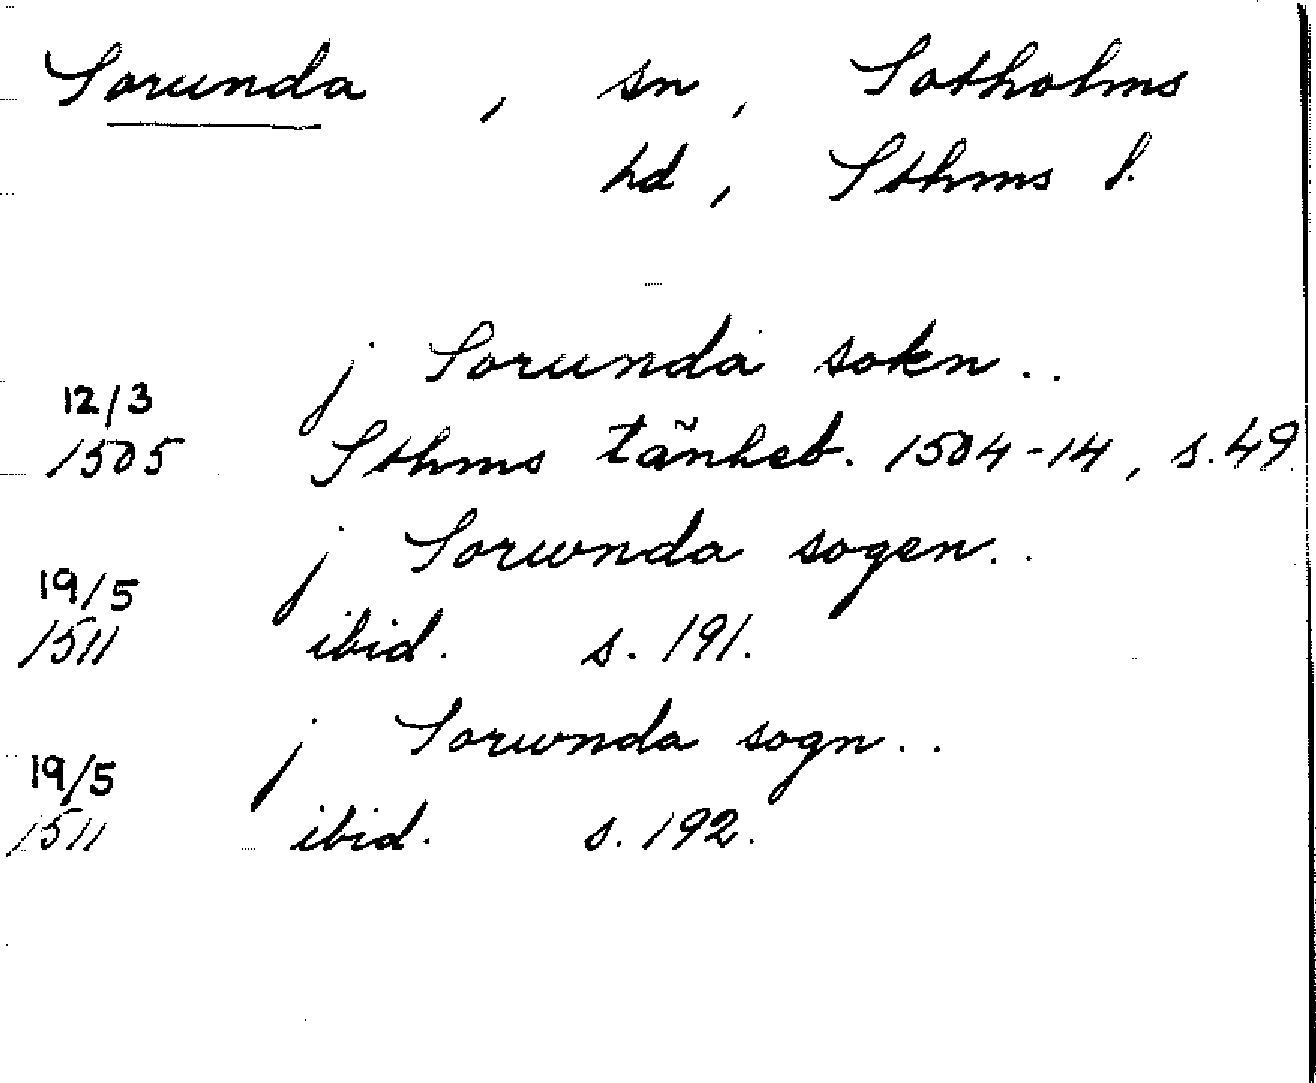 Sorunda, sn, Sotholms
hd, Sthms l.
j Sorunda sokn..
12/3
1505 Sthms tänkeb. 1504-14, s. 49
j Sorwnda sogen..
19/5
1511 ibid. s. 191.
j Sorwnda sogn..
19/5
1511 ibid. s. 192.